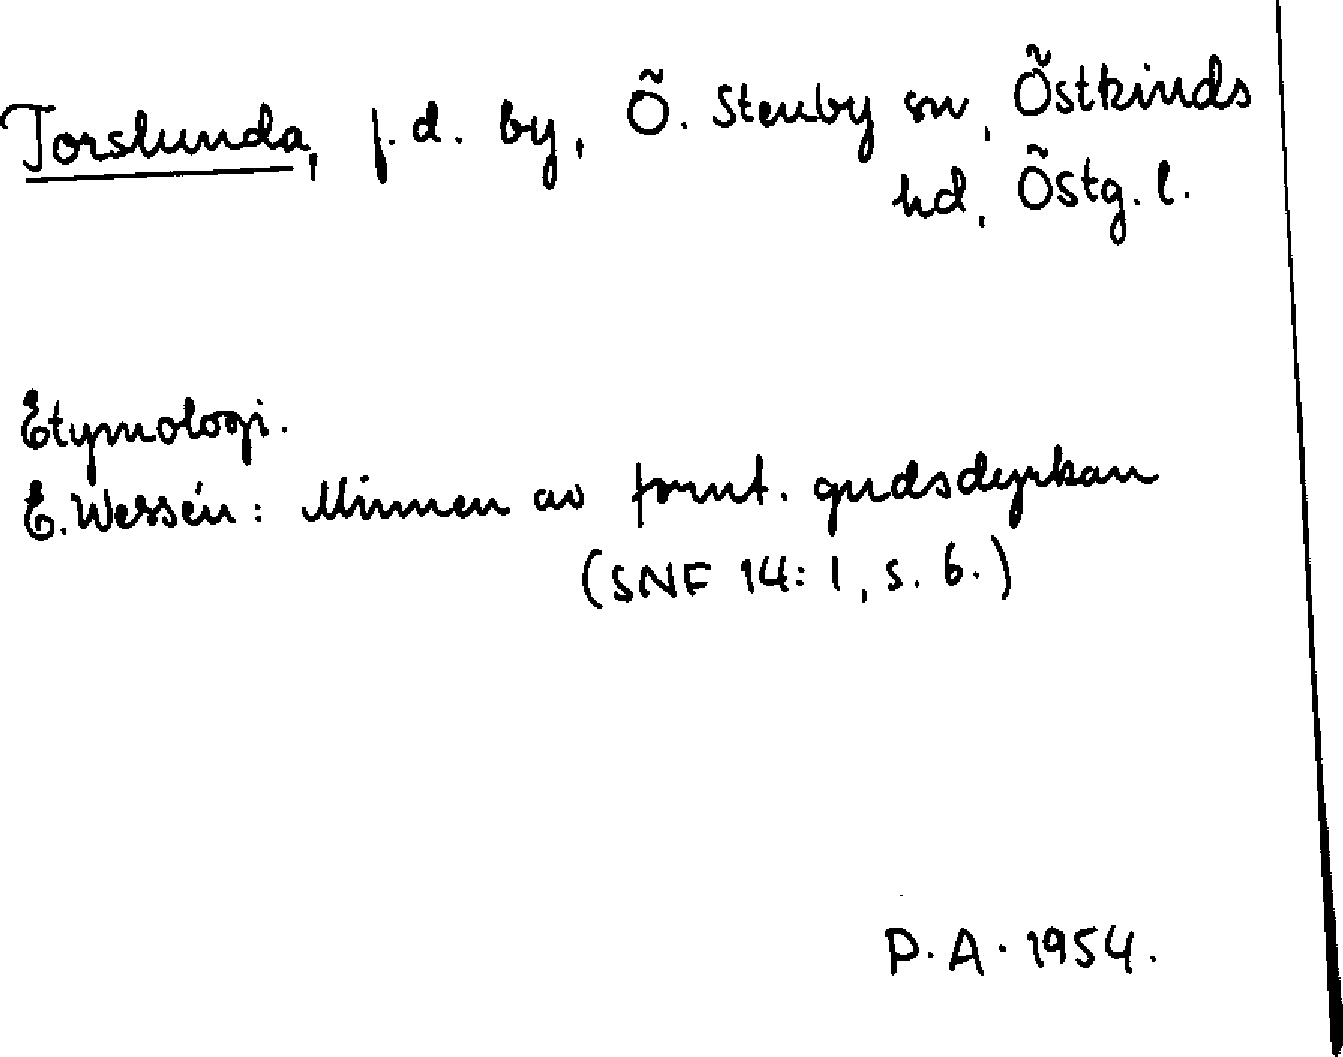 Torslunda, f.d. by, Ö. Stenby sn, Östkinds
hd, Östg. l.
Etymologi.
E. Wessén: Minnen av fornt. gudsdyrkan
(SNF 14: 1, s. 6.)
P. A. 1954.